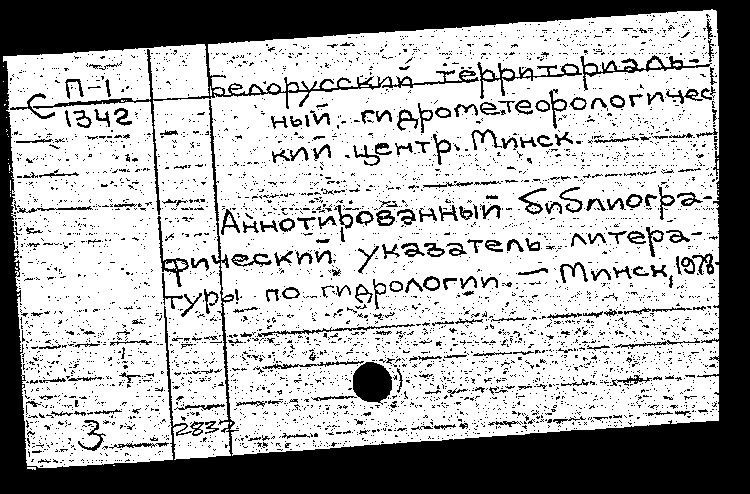 С П-1
1342
Белорусский территориаль-
ный гидрометеорологичес
кий центр. Минск.
Аннотированный библиогра-
фический указатель литера-
туры по гидрологии. — Минск, 1978-
3
2832